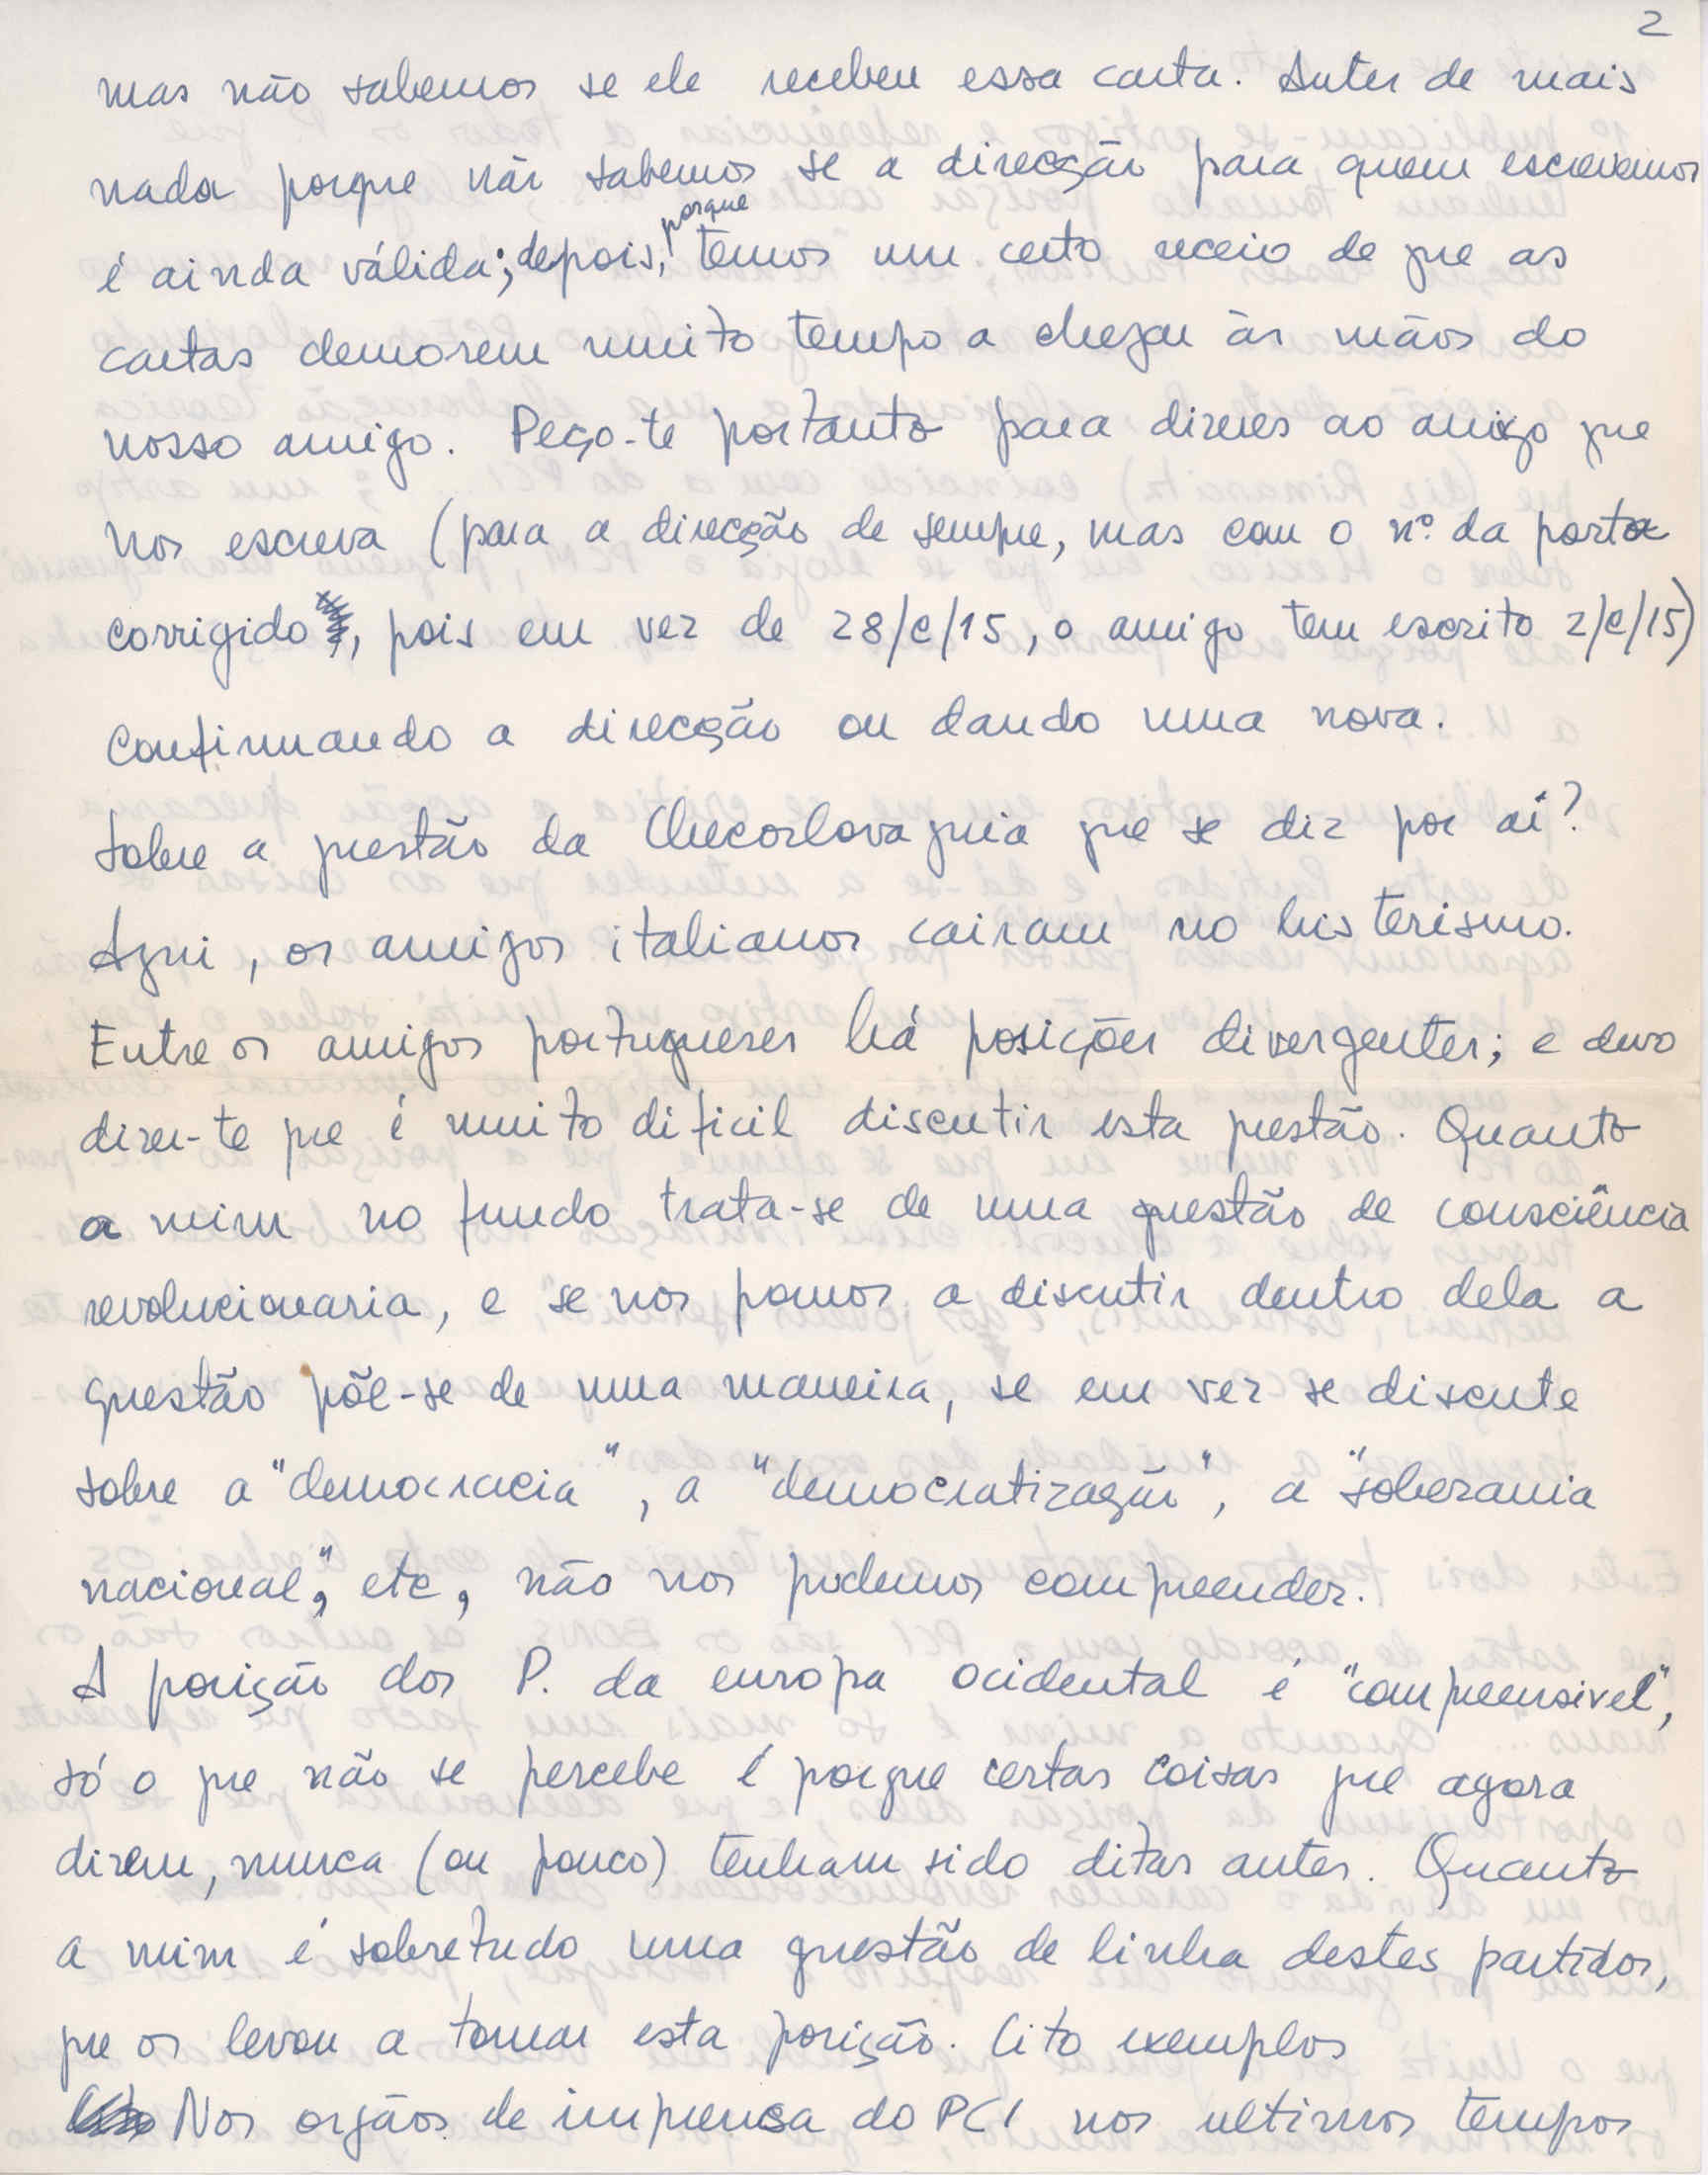 2
mas não sabemos se ele recebeu essa carta. Antes de mais
nada porque não sabemos se a direcção para quem escrevemos
é ainda válida; depois, porque temos um certo receio de que as
cartas demorem muito tempo a chegar às mãos do
nosso amigo. Peço-te portanto para dizeres ao amigo que
nos escreva (para a direcção de sempre, mas com o nº da porta
corrigido, pois em vez de 28/c/15, o amigo tem escrito 2/c/15)
confirmando a direcção ou dando uma nova.
Sobre a questão da Checoslovaquia que se diz por aí?
Aqui, os amigos italianos cairam no histerismo.
Entre os amigos portugueses há posições divergentes; e devo
dizer-te que é muito dificil discutir esta questão. Quanto
a mim no fundo trata-se de uma questão de consciência
revolucionaria, e se nos pomos a discutir dentro dela a
questão põe-se de uma maneira, se em vez se discute
sobre a "democracia", a "democratização", a "soberania
nacional", etc, não nos podemos compreender.
A posição dos P. da europa ocidental é "compreensivel",
só o que não se percebe é porque certas coisas que agora
dizem, nunca (ou pouco) tenham sido ditas antes. Quanto
a mim é sobretudo uma questão de linha destes partidos,
que os levou a tomar esta posição. Cito exemplos
Nos orgãos de imprensa do PCI nos ultimos tempos